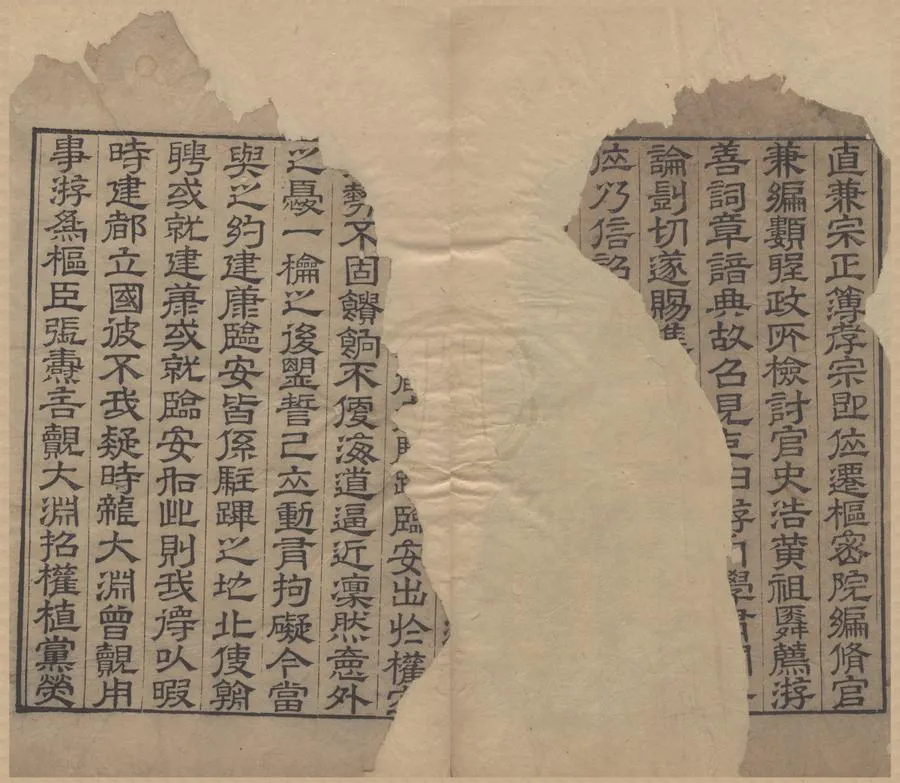 直兼宗正簿孝宗即位遷樞密院編脩官
兼編類聖政所檢討官史浩黃祖舜薦游
善詞章諳典故召見
論剴切遂賜
位乃信詔
臨安出於權
勢不固饋餉不便海道逼近凜然意外
之憂一之後盟誓已立動有拘礙今當
與之約建康臨安皆係駐蹕之地北使朝
聘或就建康或就臨安如此則我得以暇
時建都立國彼不我疑時龍大淵曾覿用
事游為樞臣張燾言覿大淵招權植黨熒